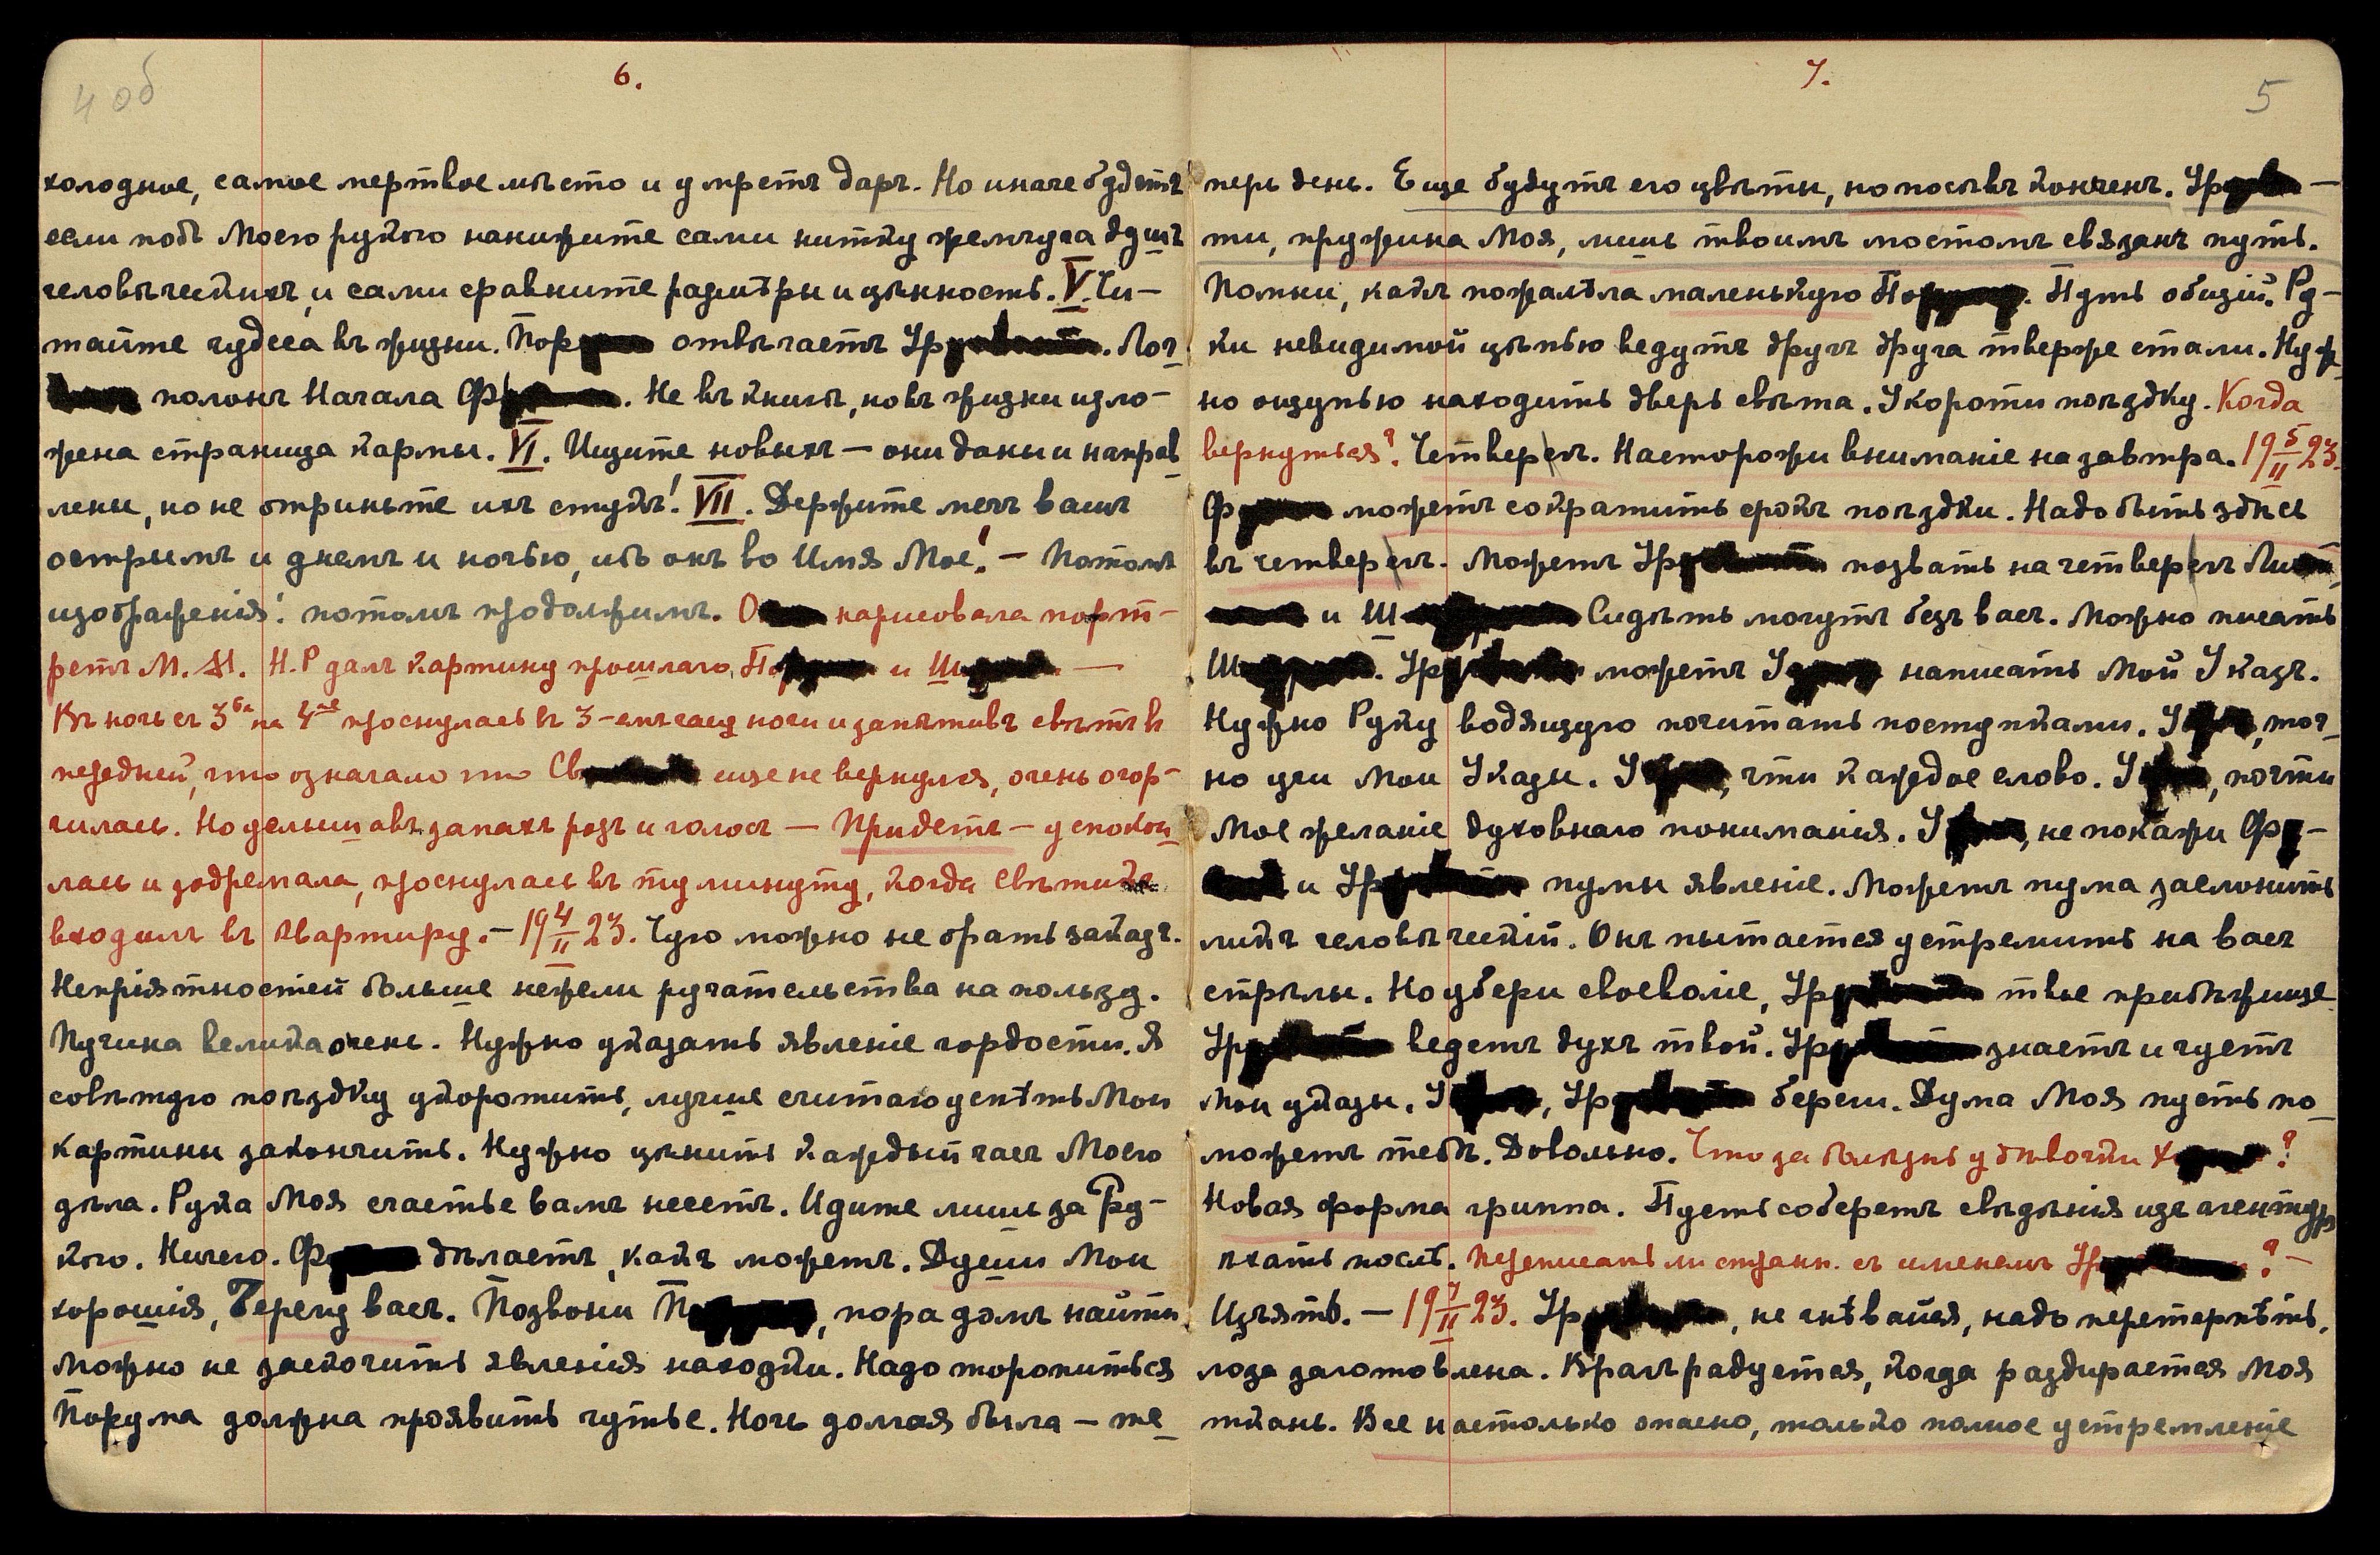 4 об
6.
холодное, самое мертвое мѣсто и умретъ даръ. Но иначе будетъ
если подъ Моею рукою нанижете сами нитку жемчуга душъ
человѣческихъ, и сами сравните размѣры и цѣнность. V. Чи–
тайте чудеса въ жизни. отвѣчаетъ
полонъ Начала Не въ книгѣ, но въ жизни изло–
жена страница кармы. VI. Ищите новыхъ — они даны и направ
лены, но не отриньте ихъ стукъ! VII. Держите мечъ вашъ
острымъ и днемъ и ночью, ибо онъ во Имя Мое! – Потомъ
изображенія: потомъ продолжимъ. нарисовала порт–
ретъ М. М. Н.Р далъ картину прошлаго и —
Въ ночь съ 3го на 4ое проснулась въ 3-емъ часу ночи и замѣтивъ свѣтъ въ
передней, что означало что еще не вернулся, очень огор–
чилась. Но услышавъ запахъ розъ и голосъ — Придетъ — успокои
лась и задремала, проснулась въ ту минуту, когда Свѣтикъ
входилъ въ квартиру. – 19 4/II 23. Чую можно не брать заказъ.
Непріятностей больше нежели ручательства на пользу.
Пучина велика очень. Нужно указать явленіе гордости. Я
совѣтую поѣздку укоротить, лучше считаю успѣть Мои
картины закончить. Нужно цѣнить каждый часъ Моего
дѣла. Рука Моя счастье вамъ несетъ. Идите лишь за Ру–
кою. Ничего. дѣлаетъ, какъ можетъ. Души Мои
хорошія, Берегу васъ. Позвони , пора домъ найти
можно не заскочить явленія находки. Надо торопиться
Порума должна проявить чутье. Ночь долгая была – те
7.
5
перь день. Еще будутъ его цвѣты, но посѣвъ конченъ.
ти, пружина Моя, лишь твоимъ мостомъ связанъ путь.
Помни, какъ пожалѣла маленькую Путь общій. Ру–
ки невидимой цѣпью ведутъ другъ друга тверже стали. Нуж
но ощупью находить дверь свѣта. Укороти поѣздку. Когда
вернуться? Четвергъ. Насторожи вниманіе на завтра. 19 5/II 23.
можетъ сократить срокъ поѣздки. Надо быть здѣсь
въ четвергъ. Можетъ позвать на четвергъ
и Сидѣть могутъ безъ васъ. Можно писать
можетъ написать Мой Указъ.
Нужно Руку водящую почитать поступками. точ
но учи Мои Указы. чти каждое слово. почти
Мое желаніе духовнаго пониманія. не покажи
и пумы явленіе. Можетъ пума заслонить
ликъ человѣческій. Онъ пытается устремить на васъ
стрѣлы. Но убери своеволіе, твое прибѣжище
ведетъ духъ твой. знаетъ и чуетъ
Мои указы. береги. Дума Моя пусть по
можетъ тебѣ. Довольно. Что за болѣзнь у дѣвочки ?
Новая форма гриппа. Пусть соберетъ свѣдѣнія изъ агентуръ
ѣхать послѣ. Переписать ли стран. съ именемъ ? –
Изъять. – 19 7/II 23. не гнѣвайся, надо перетерпѣть.
лоза заготовлена. Врагъ радуется, когда раздирается Моя
ткань. Все настолько опасно, только полное устремленіе